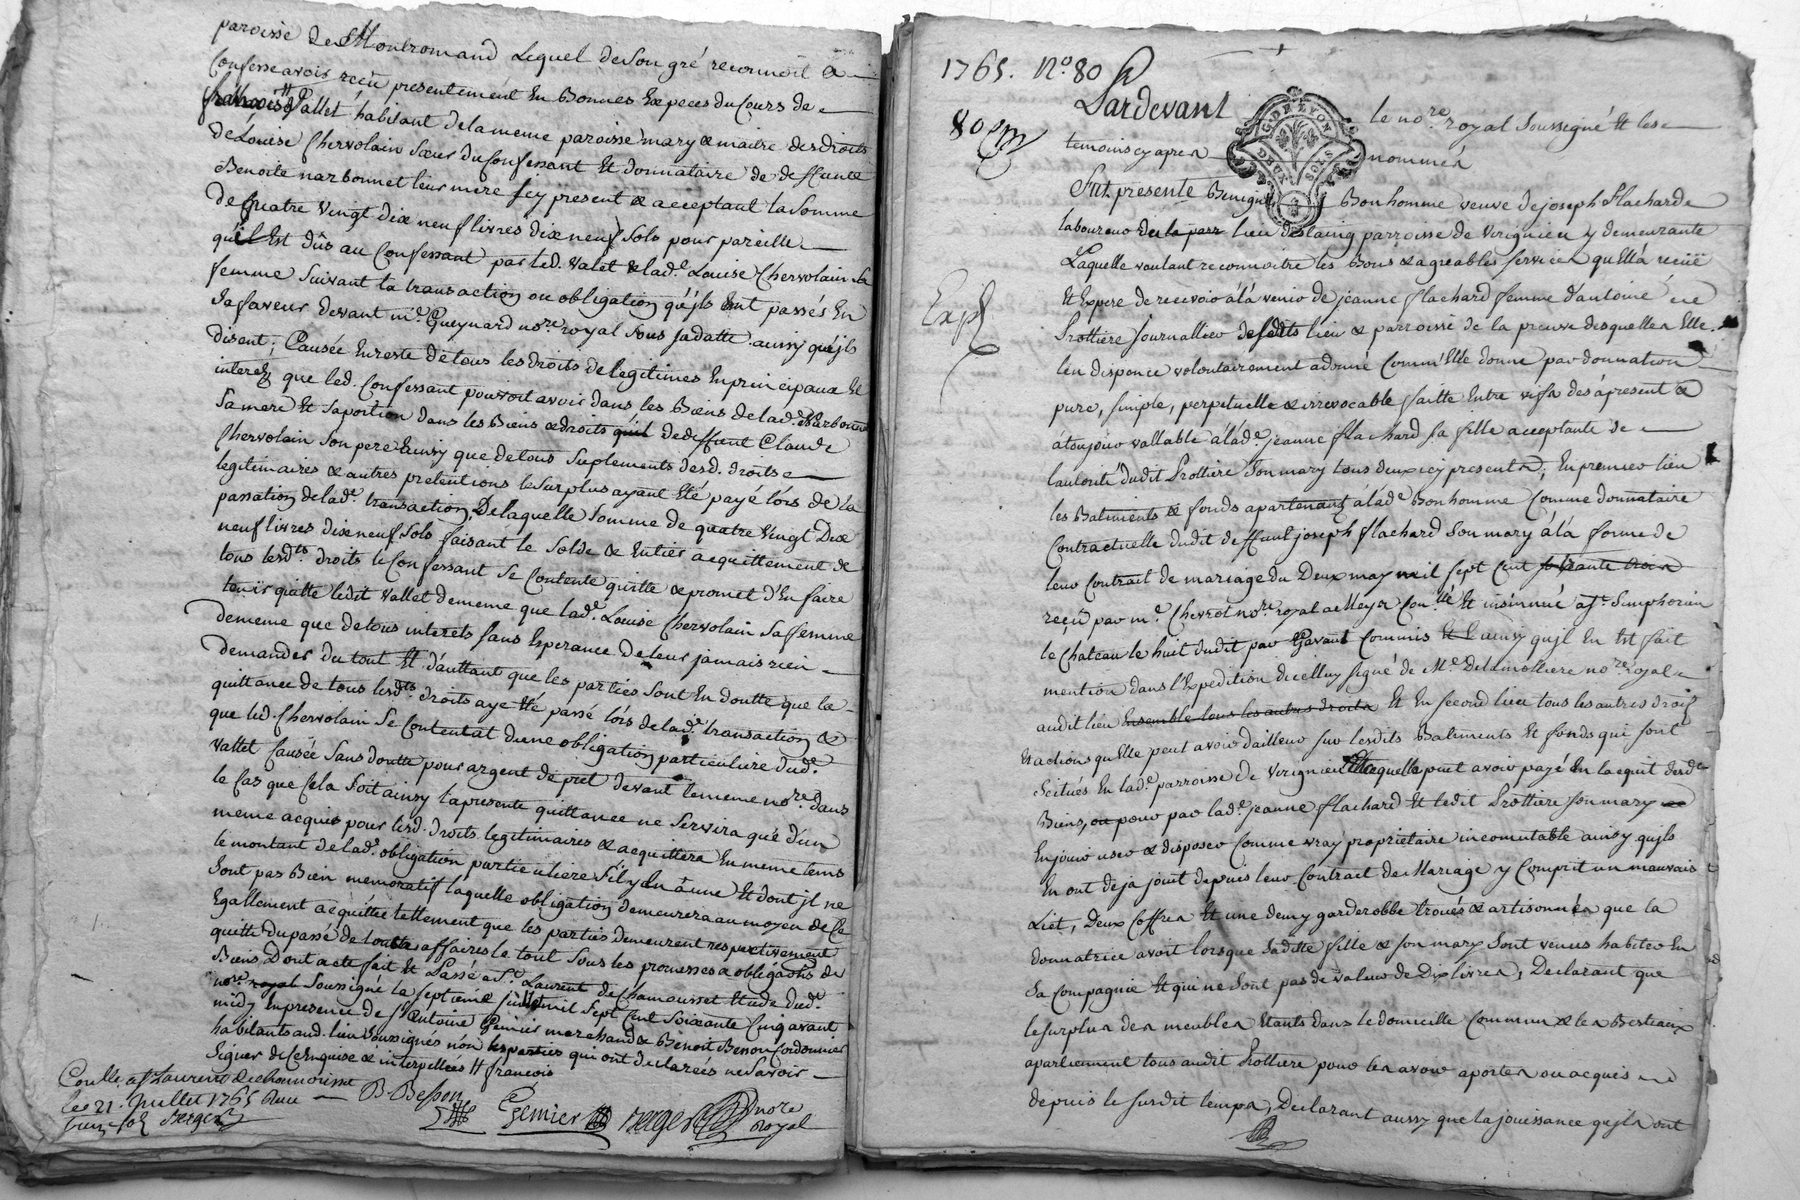 paroisse de Montromand Lequel de son gré reconnoit &
Confesse avoir reçû presentement En Bonnes Especes du Cours de
françois Vallet habitant de la meme paroisse mary & maitre des droits
de Louise Chervolain Sœur du Confessant Et donnataire de deffunte
Benoite narbonnet leur mere icy present & acceptant la Somme
de quatre vingt dix neuf livres dix neuf Sols pour pareille
qu'il Est dûs au Confessant par led. Valet & lad.e Louise Chervolain Sa
femme Suivant la transaction ou obligation qu'ils Ont passés En
Sa faveur devant m.e Gueynard no.re royal Sous Sa datte aussy qu'jls
disent; Causée En reste de tous les droits de legitimes En principaux Et
interez que led. Confessant pouvoit avoir dans les Biens de lad. Narbonne
Sa mere Et Sa portion dans les Biens & droits qu'il de deffunt Claude
Chervolain Son pere Einsy que de tous Suplements desd. droits
legitimaires & autres pretentions le Surplus ayant Eté payé lors de la
passation de lad.e transaction, De laquelle Somme de quatre Vingt Dix
neuf livres dix neuf Sols faisant le Solde & Entier acquittement de
tous lesd.ts droits le Confessant Se Contente quitte & promet d'En faire
tenir quitte ledit Vallet de meme que lad.e Louise Chervolain Sa femme
de meme que de tous interets Sans Esperance de leur jamais rien
demander du tout Et d'auttant que les parties Sont En doutte que la
quittance de tous lesd.ts droits aye Eté passé lors de lad.e transaction &
que led. Chervolain Se Contentat d'une obligation particuliere dud.e
Vallet Causée Sans doutte pour argent de pret devant le meme no.re dans
le Cas que Cela Soit ainsy la presente quittance ne Servira qué d'un
meme acquis pour lesd. droits legitimaires & acquittera En meme tems
le montant de lad.e obligation particuliere S'il y En à une Et dont jl ne
Sont pas Bien memoratif laquelle obligation demeurera au moyen de Ce
Egallement acquittée tellement que les parties demeurent respectivement
quitte du passé de toutte affaires le tout Sous les promesses & obligations de
Biens, Dont acte fait Et Passé a S.t Laurent de Chamousset Etude dud.e
no.re royal Soussigné le Septieme juillet mil Sept Cent Soixante Cinq avant
midy En presence de S.r antoine Genier marchand & Benoit Besson Cordonnier
habitants aud. lieu Soussignés non les parties qui ont declarées ne Savoir
Signer de Ce Enquise & interpellées # francois
Conllé a St Laurent de chamousset
le 21. Juillet 1765 Reçu
treize sols Berger
B Besson
Genier
Berger
nore
royal
1765. No. 80
80
Pardevant
le no.re royal Soussigné Et les
temoins cy apres
nommés
G. DE LYON
DEUX SOLS
Fut presente Benigne Bonhomme veuve de joseph flachard
laboureur de la parr lieu parroisse de Virignieu y demeurante
Laquelle voulant reconnoitre les Bons & agreables Services qu'Ella reçüe
Et Espere de recevoir à la venir de jeanne flachard femme d'antoine
Prottiere journallier desdits lieu & parroisse de la preuve desquelles Elle
l'en dispence volontairement a donné Comm'Elle donne par donnation
pure, simple, perpetuelle & irrevocable faitte Entre vifs des à present &
à toujour vallable à lad.e jeanne flachard Sa fille acceptante de
l'autorité dudit Prottiere Son mary tous deux icy presents; En premier lieu
les Batiments & fonds apartenants à lad.e Bonhomme Comme donnataire
Contractuelle dudit deffunt joseph flachard Son mary à la forme de
leur Contrat de mariage du Deux may mil Sept Cent soixante trois
reçu par m.e Chevrot no.re royal a Meys Con.llé Et insinué a S.t Simphorien
le Chateau le huit dudit par Gavant Commis Et Einsy qujl En Est fait
mention dans l'Expedition d'icelluy signé de M.e Delamolliere no.re royal
audit lieu Ensemble tous les autres droits Et En Second lieu tous les autres droits
Et actions qu'Elle peut avoir d'ailleur Sur lesdits Batiments Et fonds qui Sont
Scitués En lad.e parroisse de Virignieu Et laquelle peut avoir payé En lacquit desd.
Biens, ou pour par lad.e jeanne flachard Et ledit Prottiere Son mary
En jouir user & disposer Comme vray proprietaire incomutable ainsy qujls
En ont deja jouit depuis leur Contrat de Mariage y Comprit un mauvais
Liet, Deux Coffres Et une demy garderobbe troués & artisonnés que la
donnatrice avoit lorsque Saditte fille & Son mary Sont venus habiter En
Sa Compagnie Et qui ne Sont pas de valeur de Dix livres, Declarant que
le surplus des meubles Etants dans le domicille Commun & les Bestiaux
apartiennent tous audit Prottiere pour les avoir aportés ou acquis
depuis le susdit temps, Declarant aussy que la jouissance qujls ont